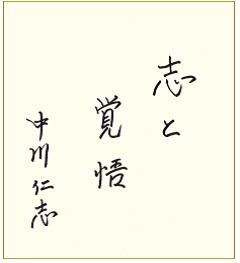 志と
覚悟
中川仁志